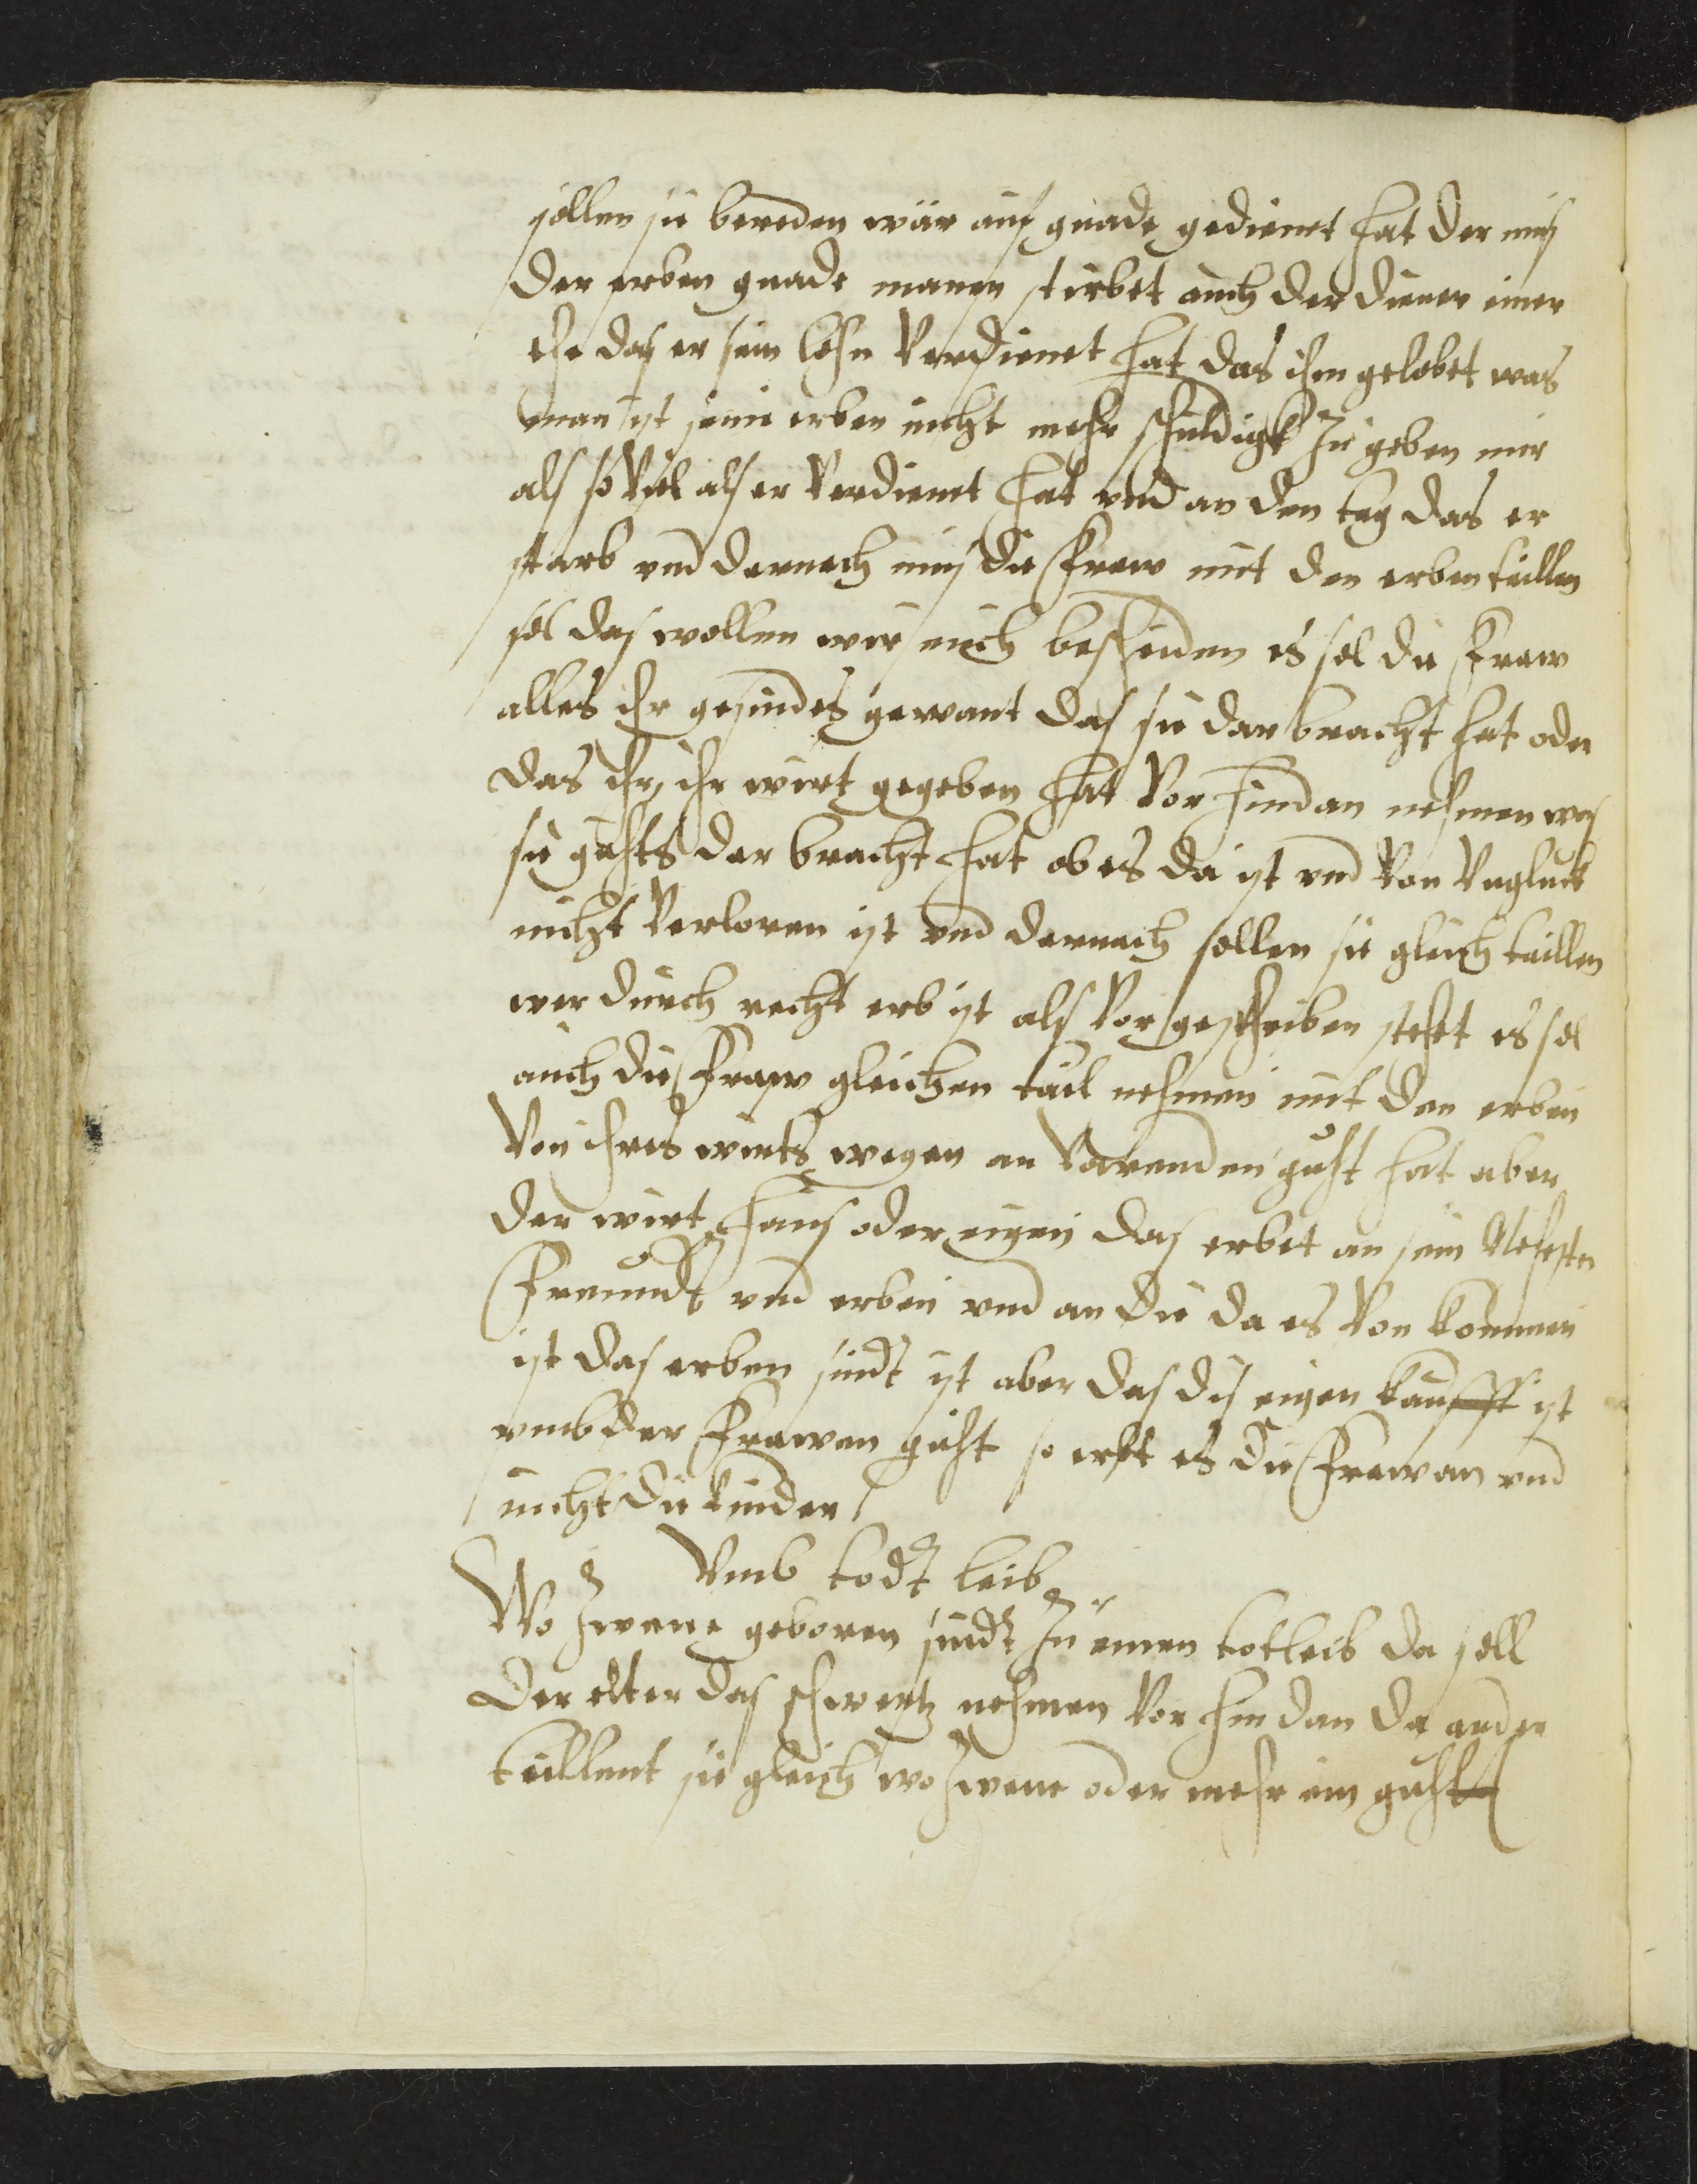 sollen sie bereden wär auf gnade gedienet hat der mus
der erben gnade manen stirbet auch der diener einer
ehe das er sein lohn Verdienet hat das ihm gelobet was
man ist seine erben nicht mehr schuldigk zu geben nur
als so Viel als er Verdienet hat vnd an den tag das er
starb vnd darnach mus die fraw mit den erben taillen
sol das wollen wir euch bescheiden es sol die fraw
alles ihr gesindes gewant das sie dar bracht hat oder
das ihr ihr wirt gegeben hat Vor hindan nehmen was
sie guhts dar bracht hat ob es da ist vnd Von Vngluck
nicht Verloren ist vnd darnach sollen sie gleich taillen
wer durch recht erb ist als Vor geschriben stehet es sol
auch die fraw gleichen tail nehmen mit den erben
Von ihres wirts wegen an Varenden guht hat aber
der wirt haus oder eigen das erbet an sein Nehesten
freundt vnd erben vnd an die da es Von kommen
ist das erben sindt ist aber das dis eigen kaufft ist
vmb der frawen guht so erbt es die frawen vnd
nicht die kinder
Vmb todt leib
Wo zwene geboren sindt zu einen totleib da soll
der elter das schwertz nehmen Vor hindan da ander
taillent sie gleich wo zwene oder mehr ein guht